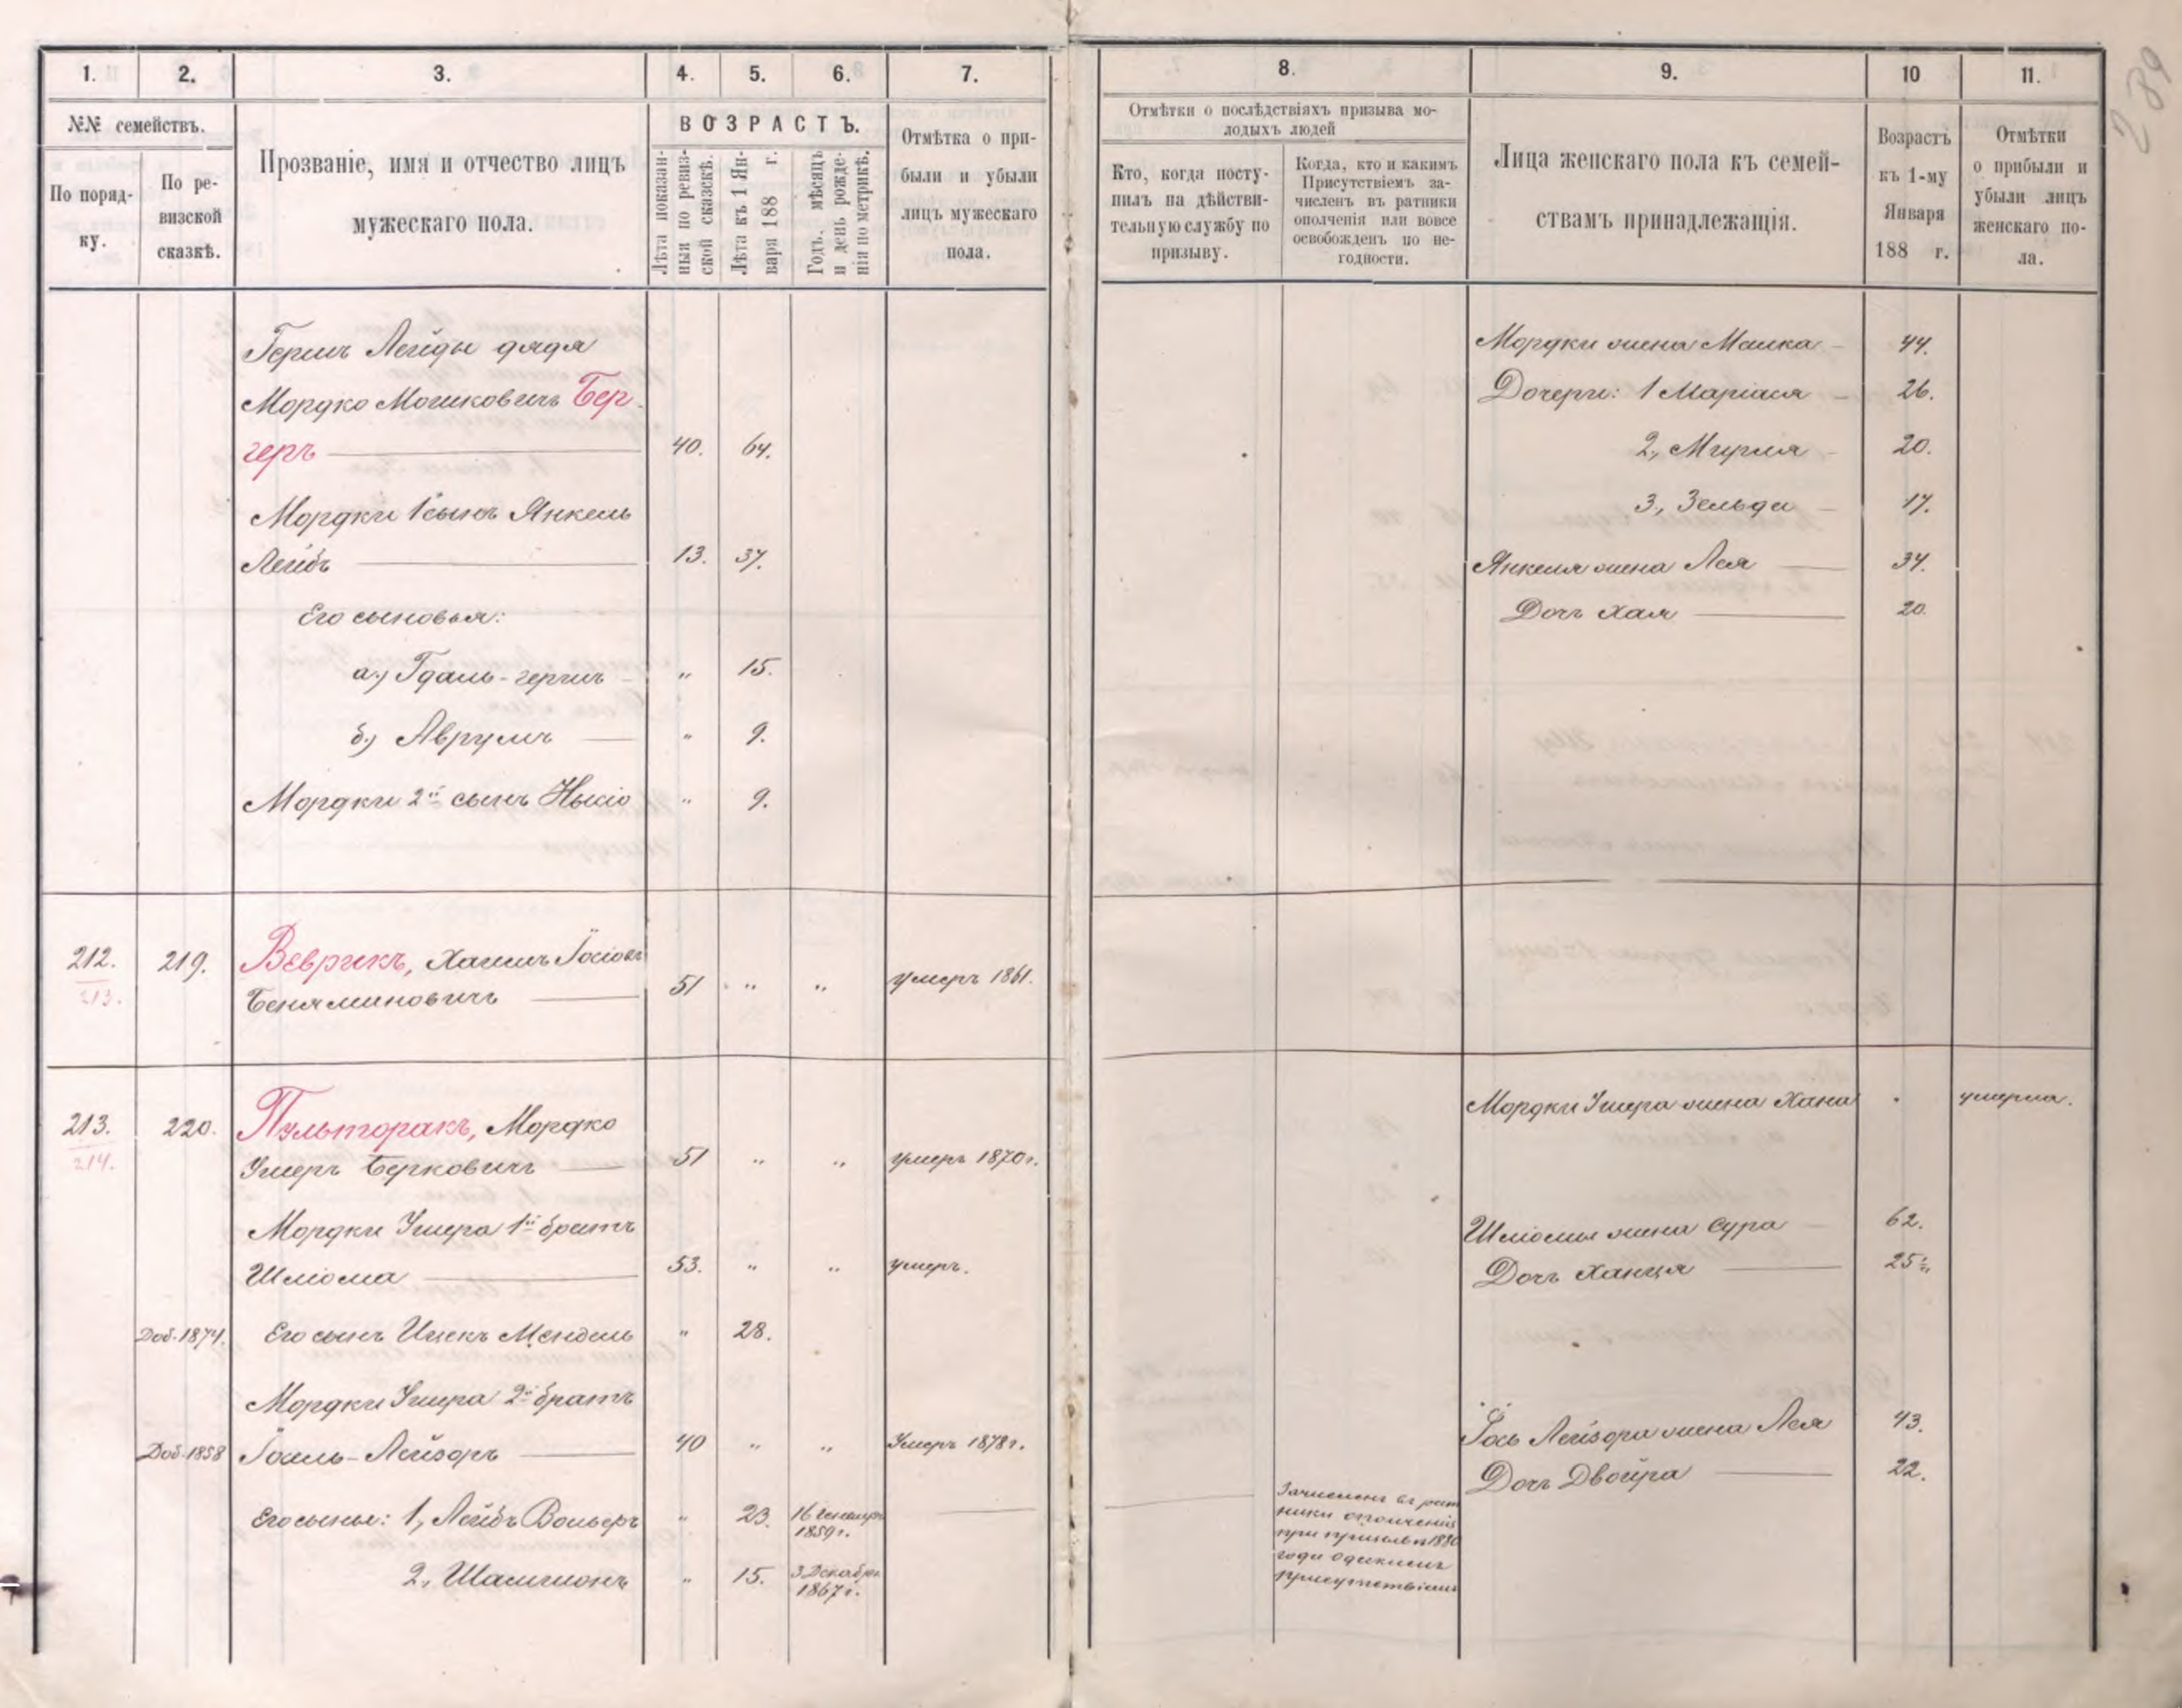 289
1. 2. 3. 4. 5. 6. 7.
№№ семействъ.
По поряд-
ку.
По ре-
визской
сказкѣ.
Прозваніе, имя и отчество лицъ
мужескаго пола.
ВОЗРАСТЪ.
Лѣта показан-
ныя по ревиз-
ской сказкѣ.
Лѣта къ 1 Ян-
варя 188 г.
Годъ, мѣсяцъ
и день рожде-
нія по метрикѣ.
Отмѣтка о при-
были и убыли
лицъ мужескаго
пола.
Герша Лейды дядя
Мордко Мошковичъ Бер
геръ 40. 64.
Мордки 1 сынъ Янкель
Лейбъ 13. 37.
Его сыновья:
а.) Гдаль-гершъ „ 15.
б.) Аврумъ „ 9.
Мордки 2й сынъ Ныкіо „ 9.
212. 219. Веврикъ, Хаимъ Іосіовъ
213. Беняминовичъ 51 „ „ умеръ 1861.
213. 220. Пульторакъ, Мордко
214. Ушеръ Берковичъ 51 „ „ умеръ 1870 г.
Мордки Ушера 1й братъ
Шліома 53. „ „ умеръ.
Доб. 1874. Его сынъ Ицекъ Мендель „ 28.
Мордки Ушера 2й братъ
Доб. 1858 Іосль-Лейзоръ 40 „ „ Умеръ 1878 г.
Его сынья: 1, Лейбъ Вольверъ „ 23. 16 Генваря
1859 г.
2, Шамшонъ „ 15. 3 Декабря
1867 г.
8. 9. 10 11.
Отмѣтки о послѣдствіяхъ призыва мо-
лодыхъ людей
Кто, когда посту-
пилъ на дѣйстви-
тельную службу по
призыву.
Когда, кто и какимъ
Присутствіемъ за-
численъ въ ратники
ополченія или вовсе
освобожденъ по не-
годности.
Лица женскаго пола къ семей-
ствамъ принадлежащія.
Возрастъ
къ 1-му
Января
188 г.
Отмѣтки
о прибыли и
убыли лицъ
женскаго по-
ла.
Мордки жена Малка 44.
Дочери: 1 Маріася 26.
2., Мирля 20.
3., Зельда 17.
Янкеля жена Лея 34.
Дочь Хая 20.
Мордки Ушера жена Хана умерла.
Шліомы жена Сура 62.
Дочь Ханця 25
Іось Лейзора жена Лея 43.
Дочь Двойра 22.
Зачисленъ въ рат
ники ополченія
при призывѣ 1880
года Одескимъ
присутствіемъ